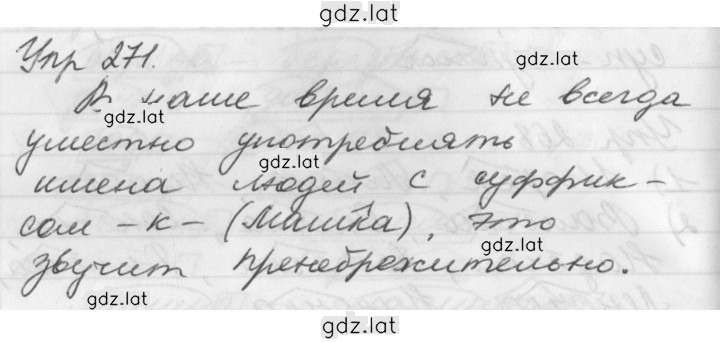 gdz.lat
Упр 271.
gdz.lat
В наше время не всегда
gdz.lat
уместно употреблять
gdz.lat
имена людей с суффик-
сом -к- (Машка). Это
gdz.lat
звучит пренебрежительно.
gdz.lat
gdz.lat